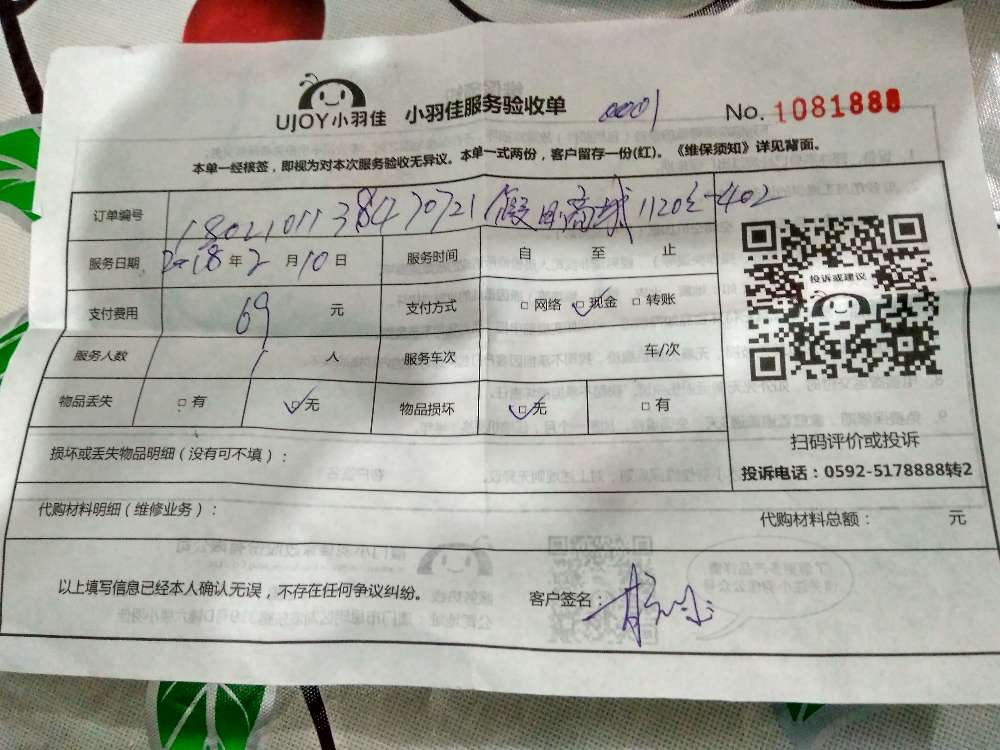 UJOY小羽佳 小羽佳服务验收单 0001 No. 1081888
本单一经核签，即视为对本次服务验收无异议。本单一式两份，客户留存一份(红)。《维保须知》详见背面。
订单编号 18021011384730721 假日商城1120之402
服务日期 2018 年 2 月 10 日 服务时间 自 至 止
支付费用 69 元 支付方式 □ 网络 □ 现金 □ 转账
服务人数 1 人 服务车次 车/次
物品丢失 □ 有 □ 无 物品损坏 □ 无 □ 有
投诉或建议
扫码评价或投诉
投诉电话：0592-5178888转2
损坏或丢失物品明细（没有可不填）：
代购材料明细（维修业务）： 代购材料总额： 元
以上填写信息已经本人确认无误，不存在任何争议纠纷。 客户签名：